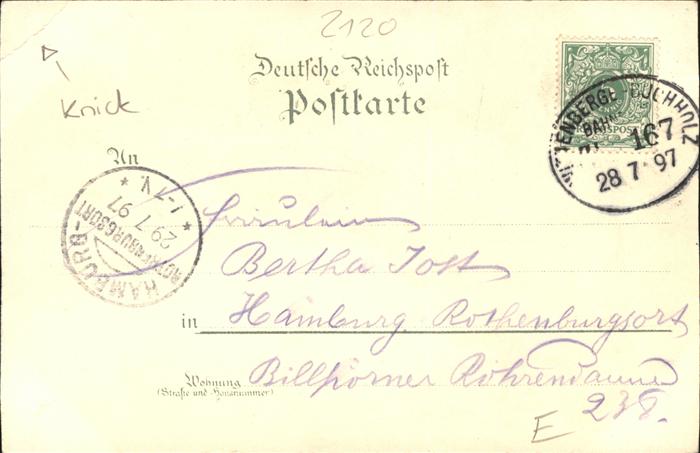 2120
Knick
Deutsche Reichspost
Postkarte
REICHSPOST
WITTENBERGE BUCHHOLZ
BAHN
167
28 7 97
An
HAMBURG-
ROTHENBURGSORT
29.7.97
1-V.
Fräulein
Bertha Jost
in Hamburg Rothenburgsort
Wohnung
(Straße und Hausnummer)
Billhörner Röhrendamm
238.
E